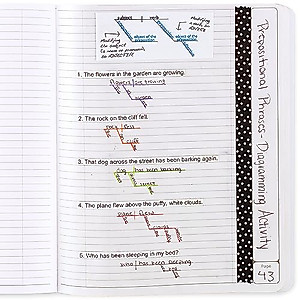 subject verb
Modifying
the subject
object of the
preposition
object of the
preposition
1. The flowers in the garden are growing.
flowers are growing
garden
2. The rock on the cliff fell.
rock fell
cliff
3. That dog across the street has been barking again.
dog has been barking
street
4. The plane flew above the puffy, white clouds.
plane flew
clouds
5. Who has been sleeping in my bed?
who has been sleeping
bed
Prepositional Phrases- Diagramming Activity
Page
43